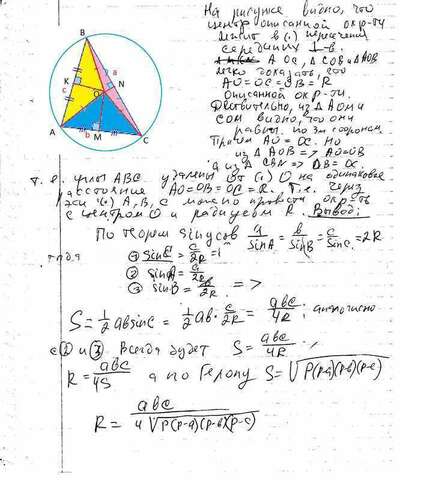 На рисунке видно, что
центр описанной окр-ти
лежит в (·) пересечения
серединных ⊥-в.
AOC, △COB и △AOB
легко показать, что
AO = OC = OB = R
Описанной окр-ти.
Действительно, из △AOM и
COM видно, что они
равны. по 3м сторонам.
Причем AO = OC. Но
из △AOB => AO=OB
из △CBN => OB=OC.
т.е. углы ABC удалены от (·) O на одинаковое
расстояние AO=OB=OC=R. Т.е. через
эти (·) A, B, C можно провести окр-ть
с центром O и радиусом R. Вывод:
По теор. синусов a/sinA = b/sinB = c/sinC = 2R
тогда
① sinC = c/2R =1
② sinA = a/2R
③ sinB = b/2R. =>
S = 1/2 ab sinC = 1/2 ab · c/2R = abc/4R; аналогично
с ② и ③ всегда будет S = abc/4R.
R = abc/4S а по Герону S = √P(P-a)(P-b)(P-c)
R = abc/4√P(P-a)(P-b)(P-c)
B
a
K
c
O
N
A
b
M
C